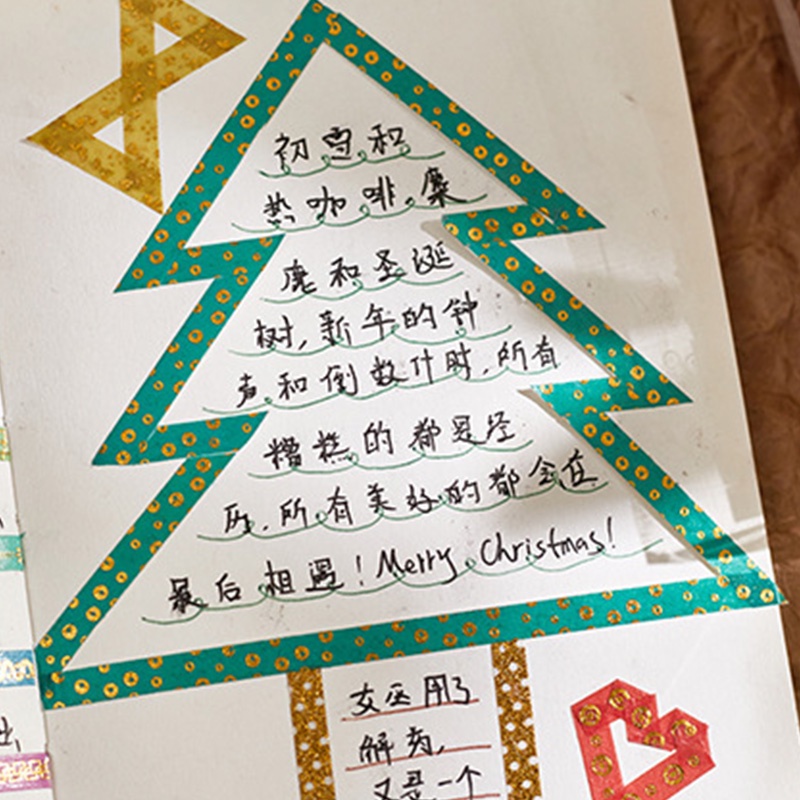 初雪和
热咖啡,麋
鹿和圣诞
树,新年的钟
声和倒数计时,所有
糟糕的都是经
历,所有美好的都会在
最后相遇!Merry Christmas!
女巫用了
解药,
又是一个